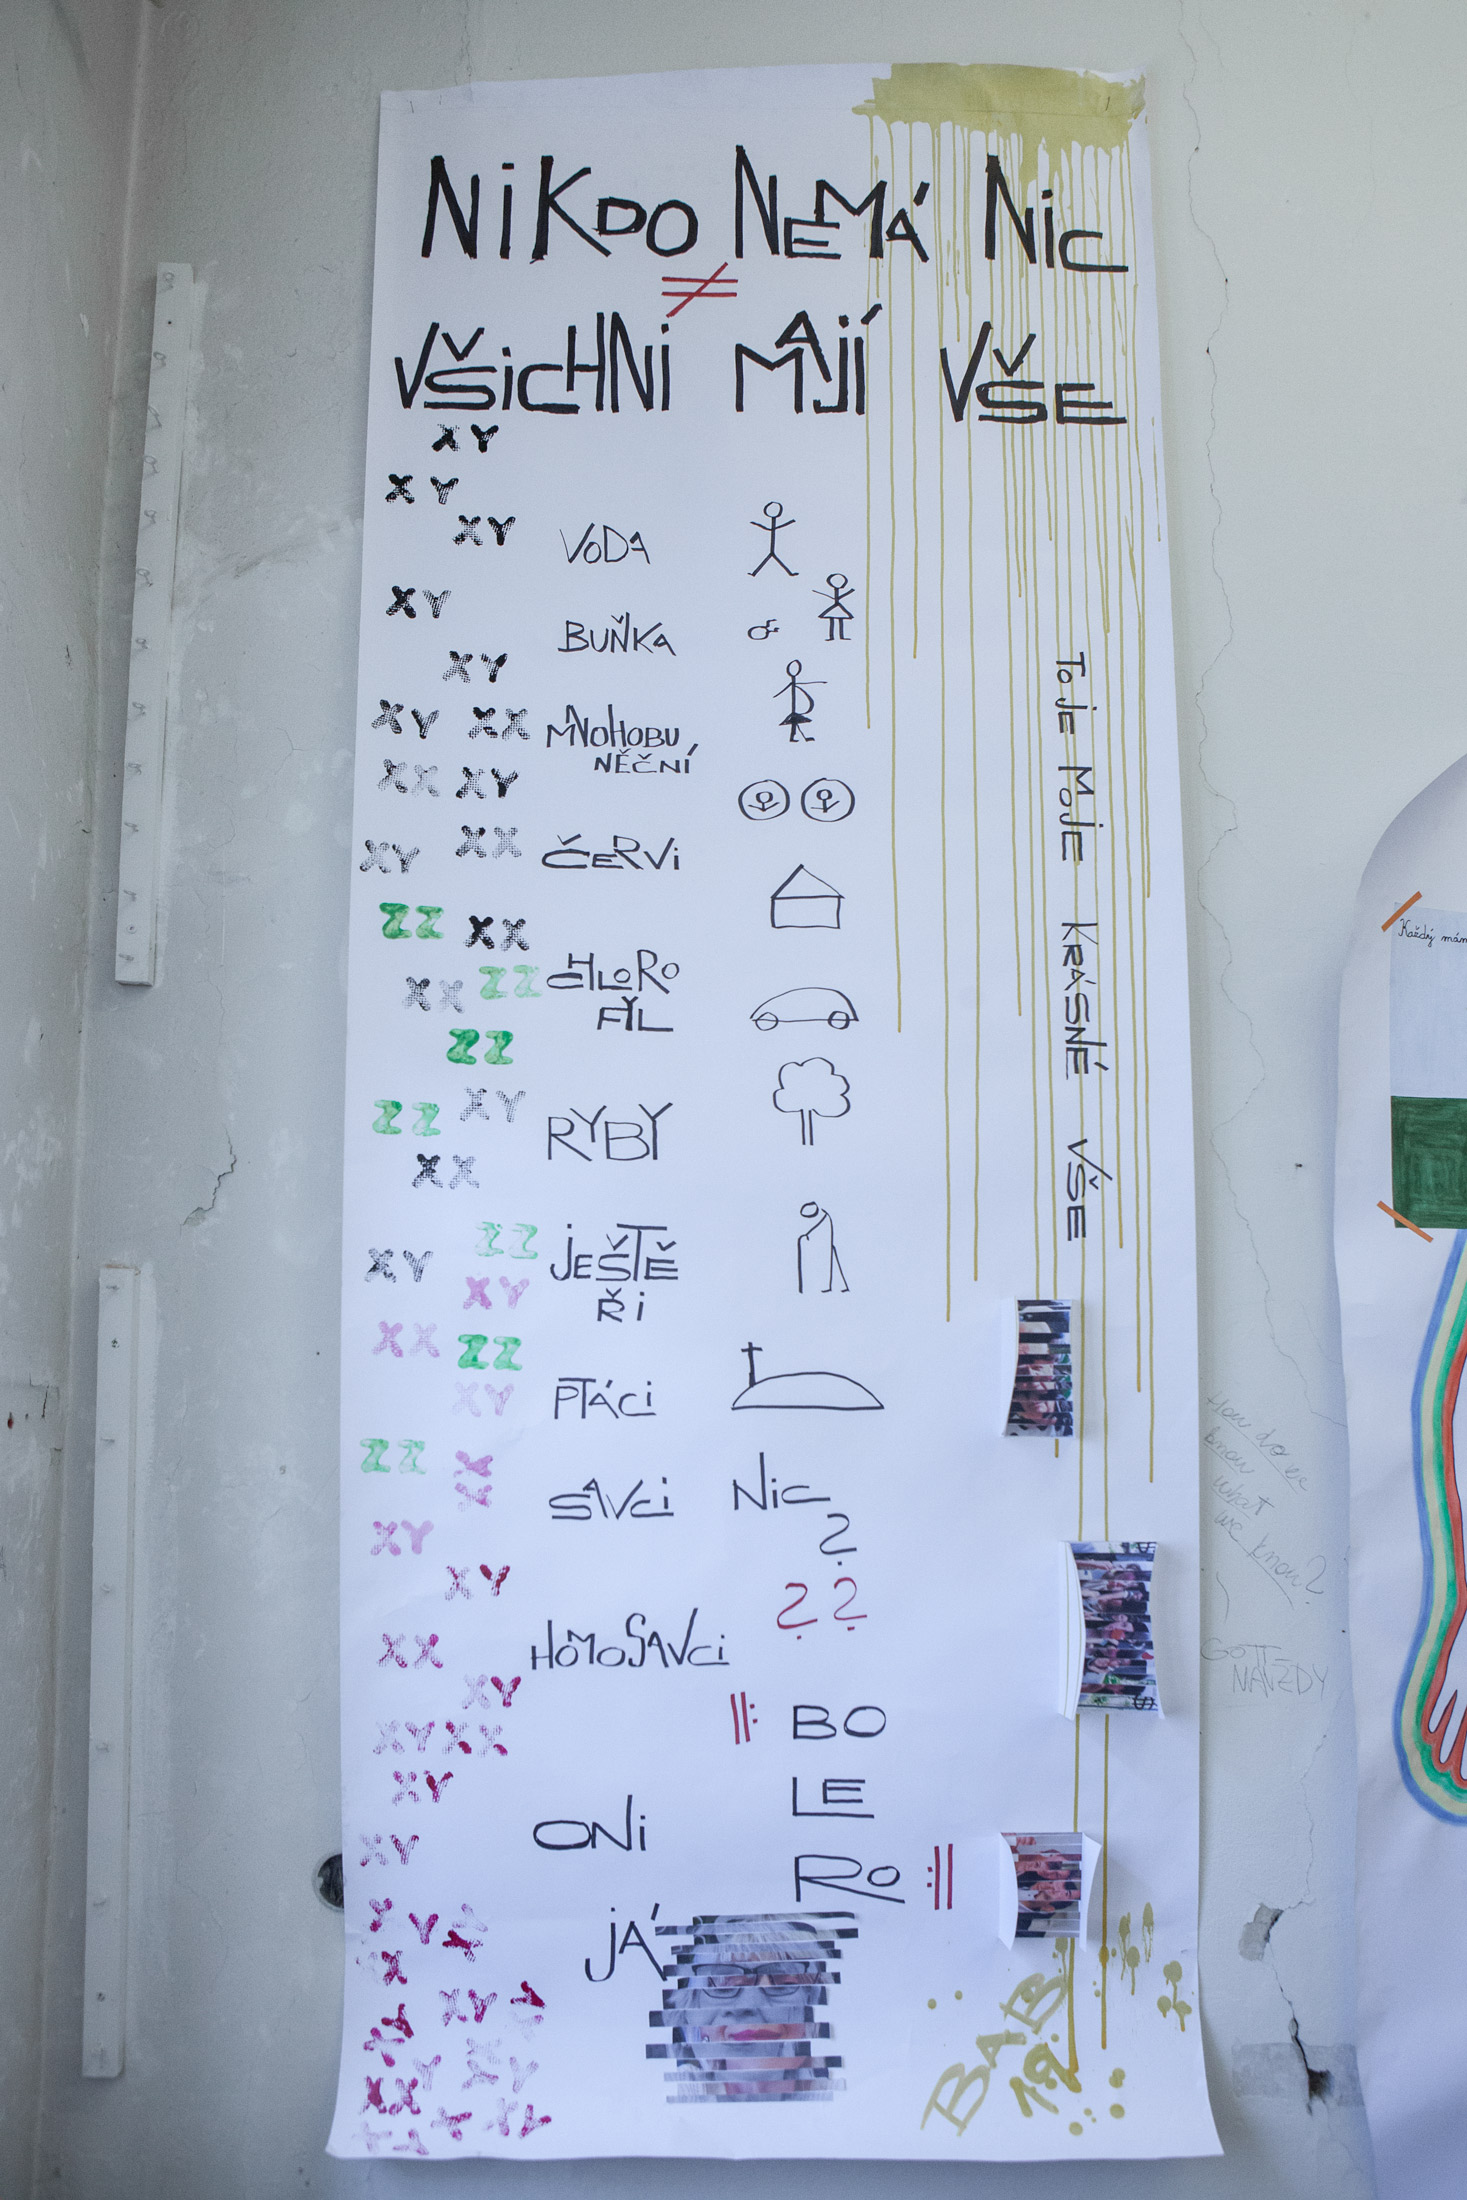 NiKDO NEMÁ NiC
≠
VŠiCHNi MAJÍ VŠE
XY
XY
XY
VODA
XY
BUŇKA
XY
XY XX
MNOHOBU
NĚČNÍ
XX XY
XY XX
ČERVi
ZZ XX
XX ZZ
CHLORO
FYL
ZZ
ZZ XY
RYBY
XX
ZZ
XY
JEŠTĚ
Ři
XY
XX ZZ
XY
PTÁCi
ZZ X
X
SAVCi
NiC
?
XY
XY
? ?
HOMOSAVCi
XX
XY
XY XX
XY
ONi
XY
BO
LE
RO
JÁ
TO JE MOJE KRÁSNÉ VŠE
BAB
19
Každý mám
How do we
know
what
we know?